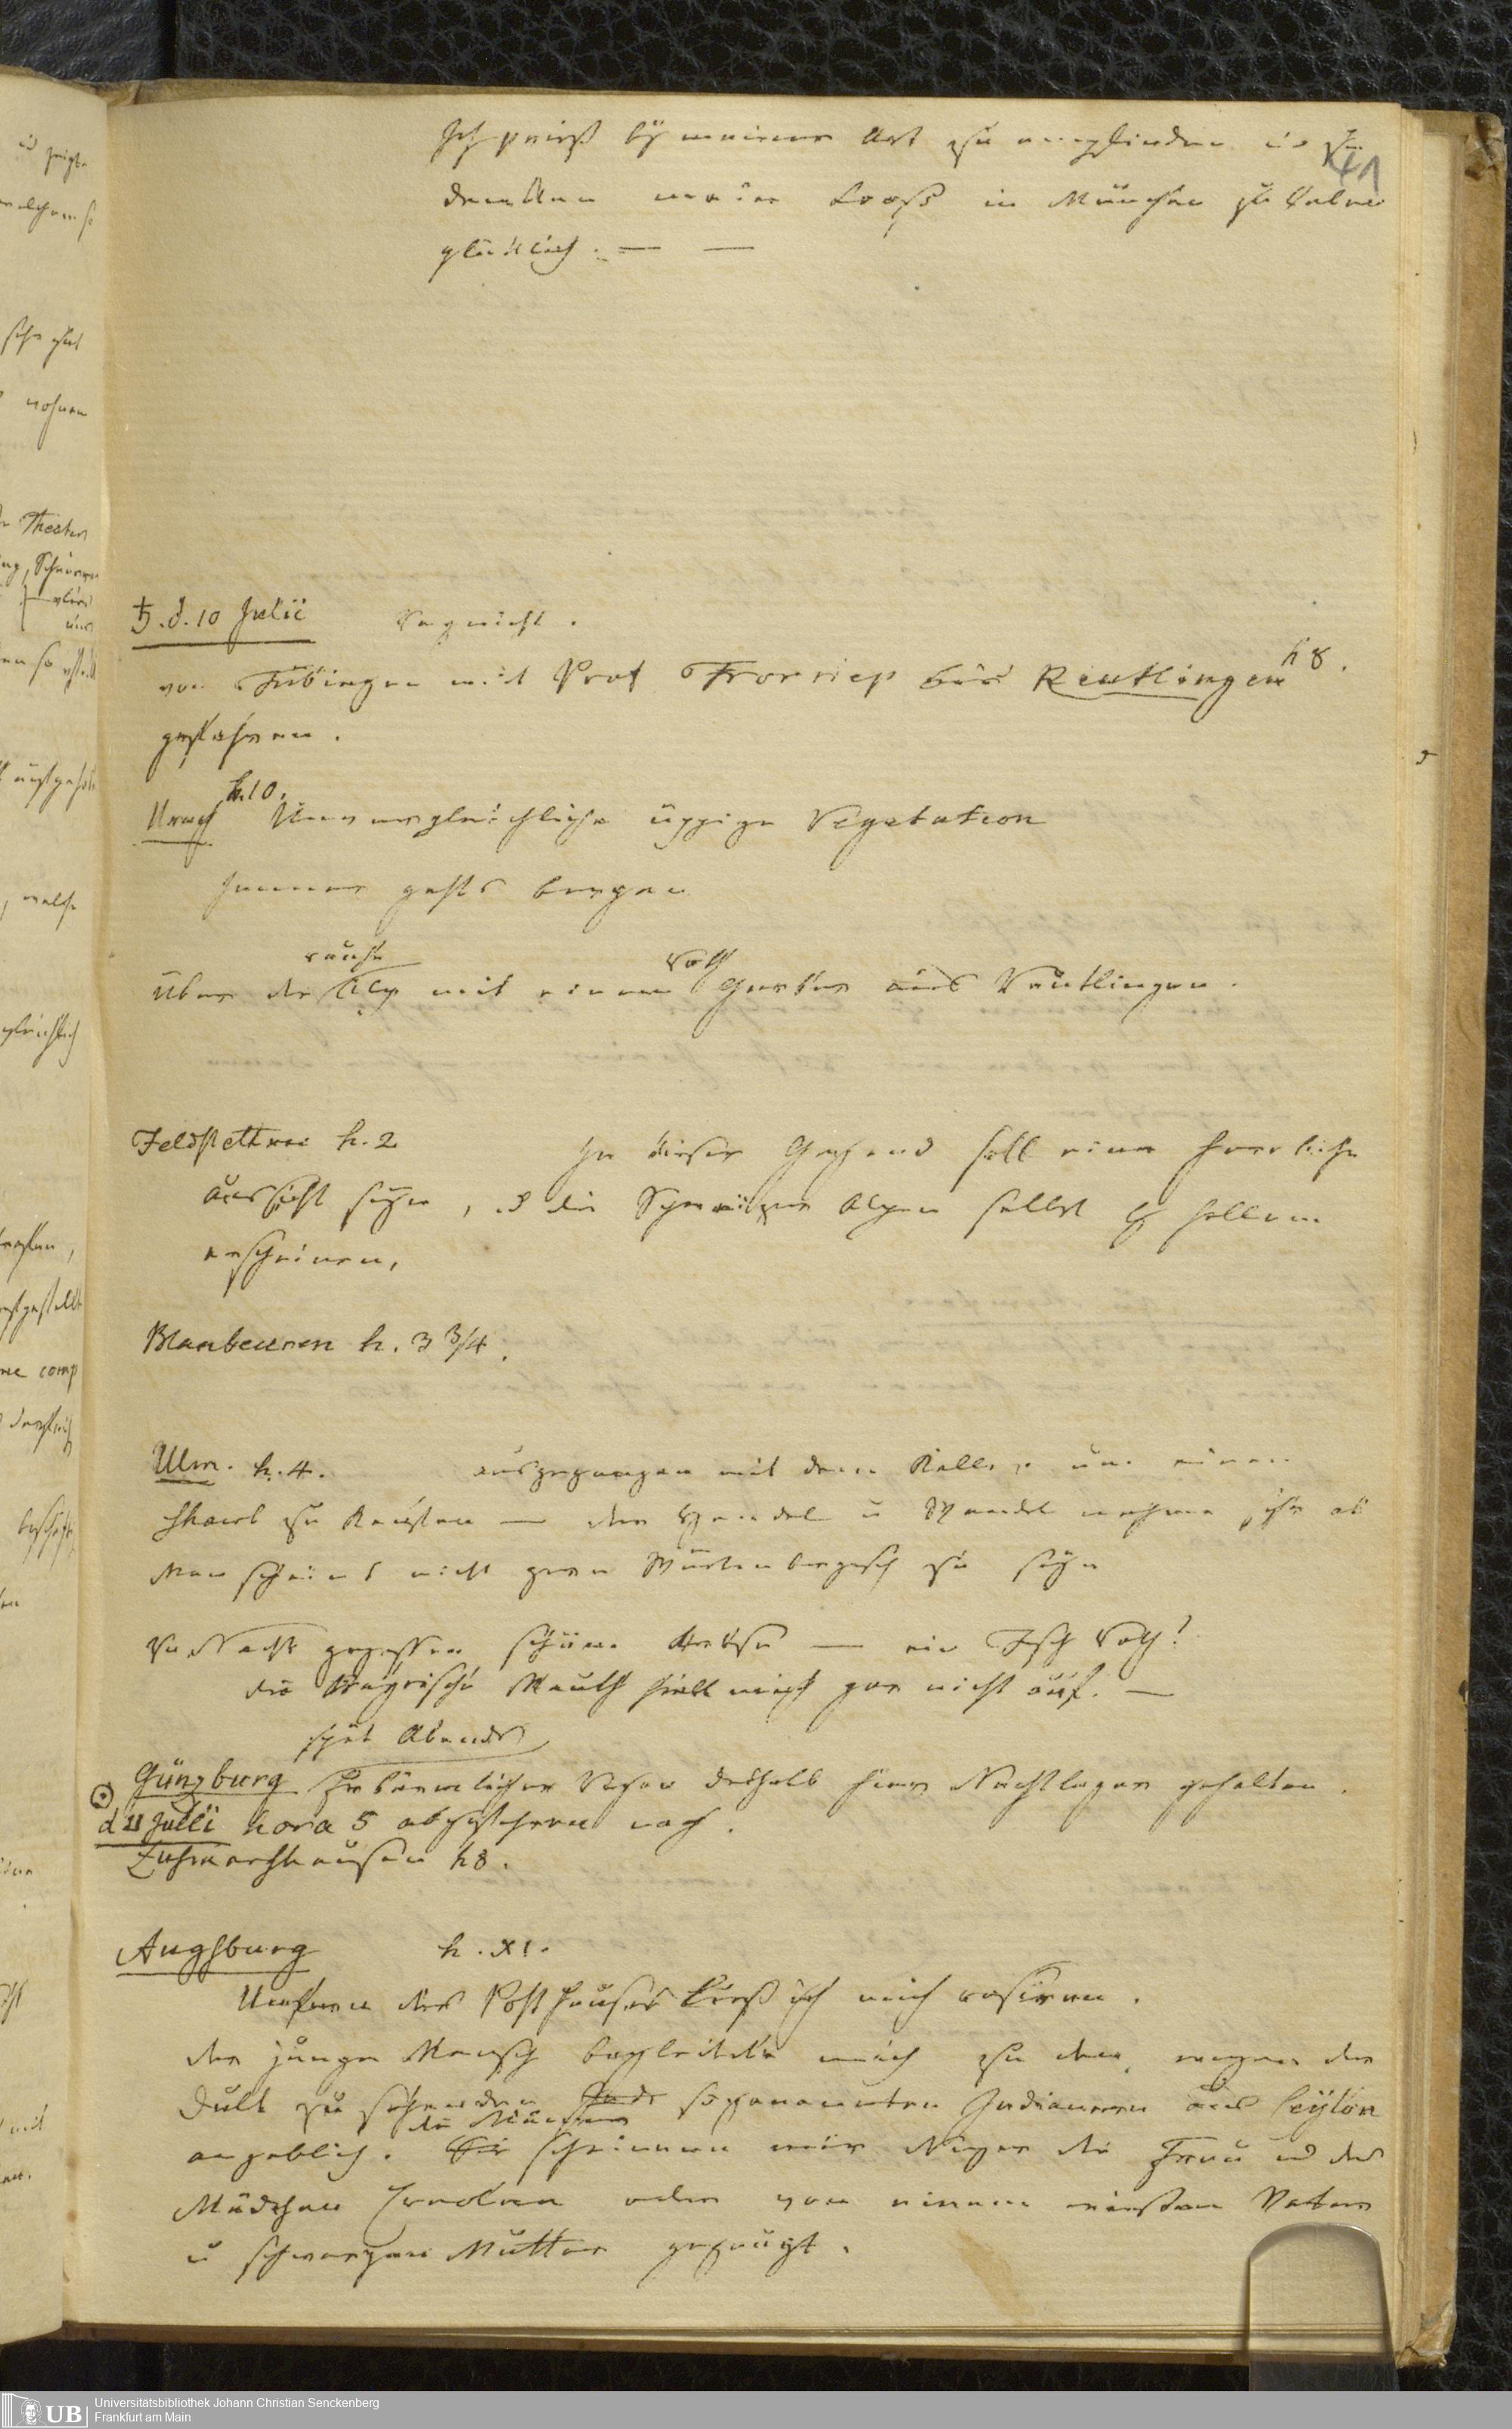 Ich prieß bÿ meiner Art zu empfinden und zu
41
denken mein Looß in München zu leben
glücklich. — —
♄. d. 10 Julii Vergnügt.
von Tübingen mit Prof Froriep bis Reutlingen h 8.
gefahren.
Urach h. 10. Unvergleichliche üppige Vegetation
Immer gehts bergan
rauhe
über die Alp mit einem Gerber aus Reutlingen.
Feldstetten h. 2 In dieser Gegend soll eine herrliche
Aussicht seÿn, u die Schweitzer Alpen selbst sollen
erscheinen,
Blaubeuren h. 3 3/4.
Ulm. h. 4. ausgegangen mit dem Kellner um einen
Shawl zu kaufen — der Handel u Wandel nehme sehr ab
Man scheint nicht gern Würtenbergisch zu seÿn
zu Nacht gegessen schöne Krebse — ein Tisch voll!
die Bayrische Mauth hielt mich gar nicht auf. —
spät Abends
Günzburg Erbärmlicher Regen deshalb hier Nachtlager gehalten.
☉
d 11 Julii hora 5 abgefahren nach.
Zusmarshausen h 8.
Augsburg h. XI.
Unfern des Posthauses ließ ich mich rasiren.
der junge Mensch begleitete mich zu den, wegen der
Dult zu sehenden sogenannten Indianern aus Ceÿlon
die Männer
angeblich. Sie scheinen mir Neger die Frau und das
Mädchen Creolen oder von einem weissen Vater
u schwarzen Mutter gezeugt.
Universitätsbibliothek Johann Christian Senckenberg
UB Frankfurt am Main